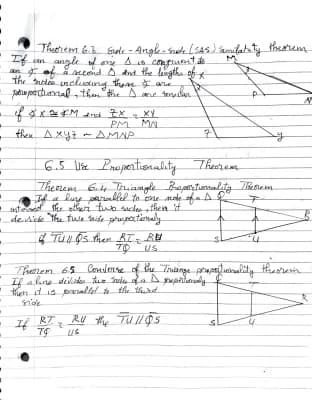 Theorem 6.3 Side-Angle-Side (SAS) Similarity theorem
If an angle of one Δ is congruent to
an ∡ of a second Δ and the lengths of
the sides including these ∡ are
proportional, then the Δ are similar
X
M
P
N
Z
y
if ∡ X ≅ ∡ M and ZX/PM = XY/MN
then Δ XYZ ~ Δ MNP
6.5 Use Proportionality Theorem
Theorem 6.4 Triangle Proportionality Theorem
If a line parallel to one side of a Δ
intersect the other two sides, then it
devide the two side proportionally
Q
T
R
S
U
if TU // QS then RT/TQ = RU/US
Theorem 6.5 Converse of the Triange proportionality theorem
If a line divides two sides of a Δ proportionally
then it is parallel to the third
side
Q
T
R
S
U
If RT/TQ = RU/US the TU // QS